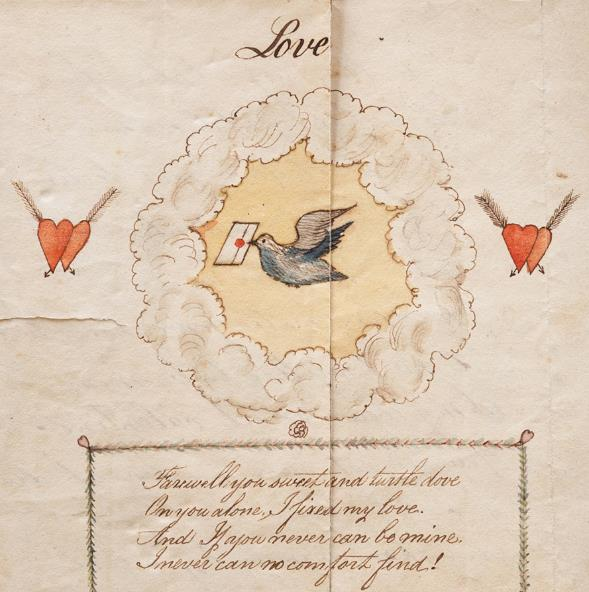 Love
Farewell you sweet and turtle dove
On you alone, I fixed my love.
And If you never can be mine.
I never can no comfort find!